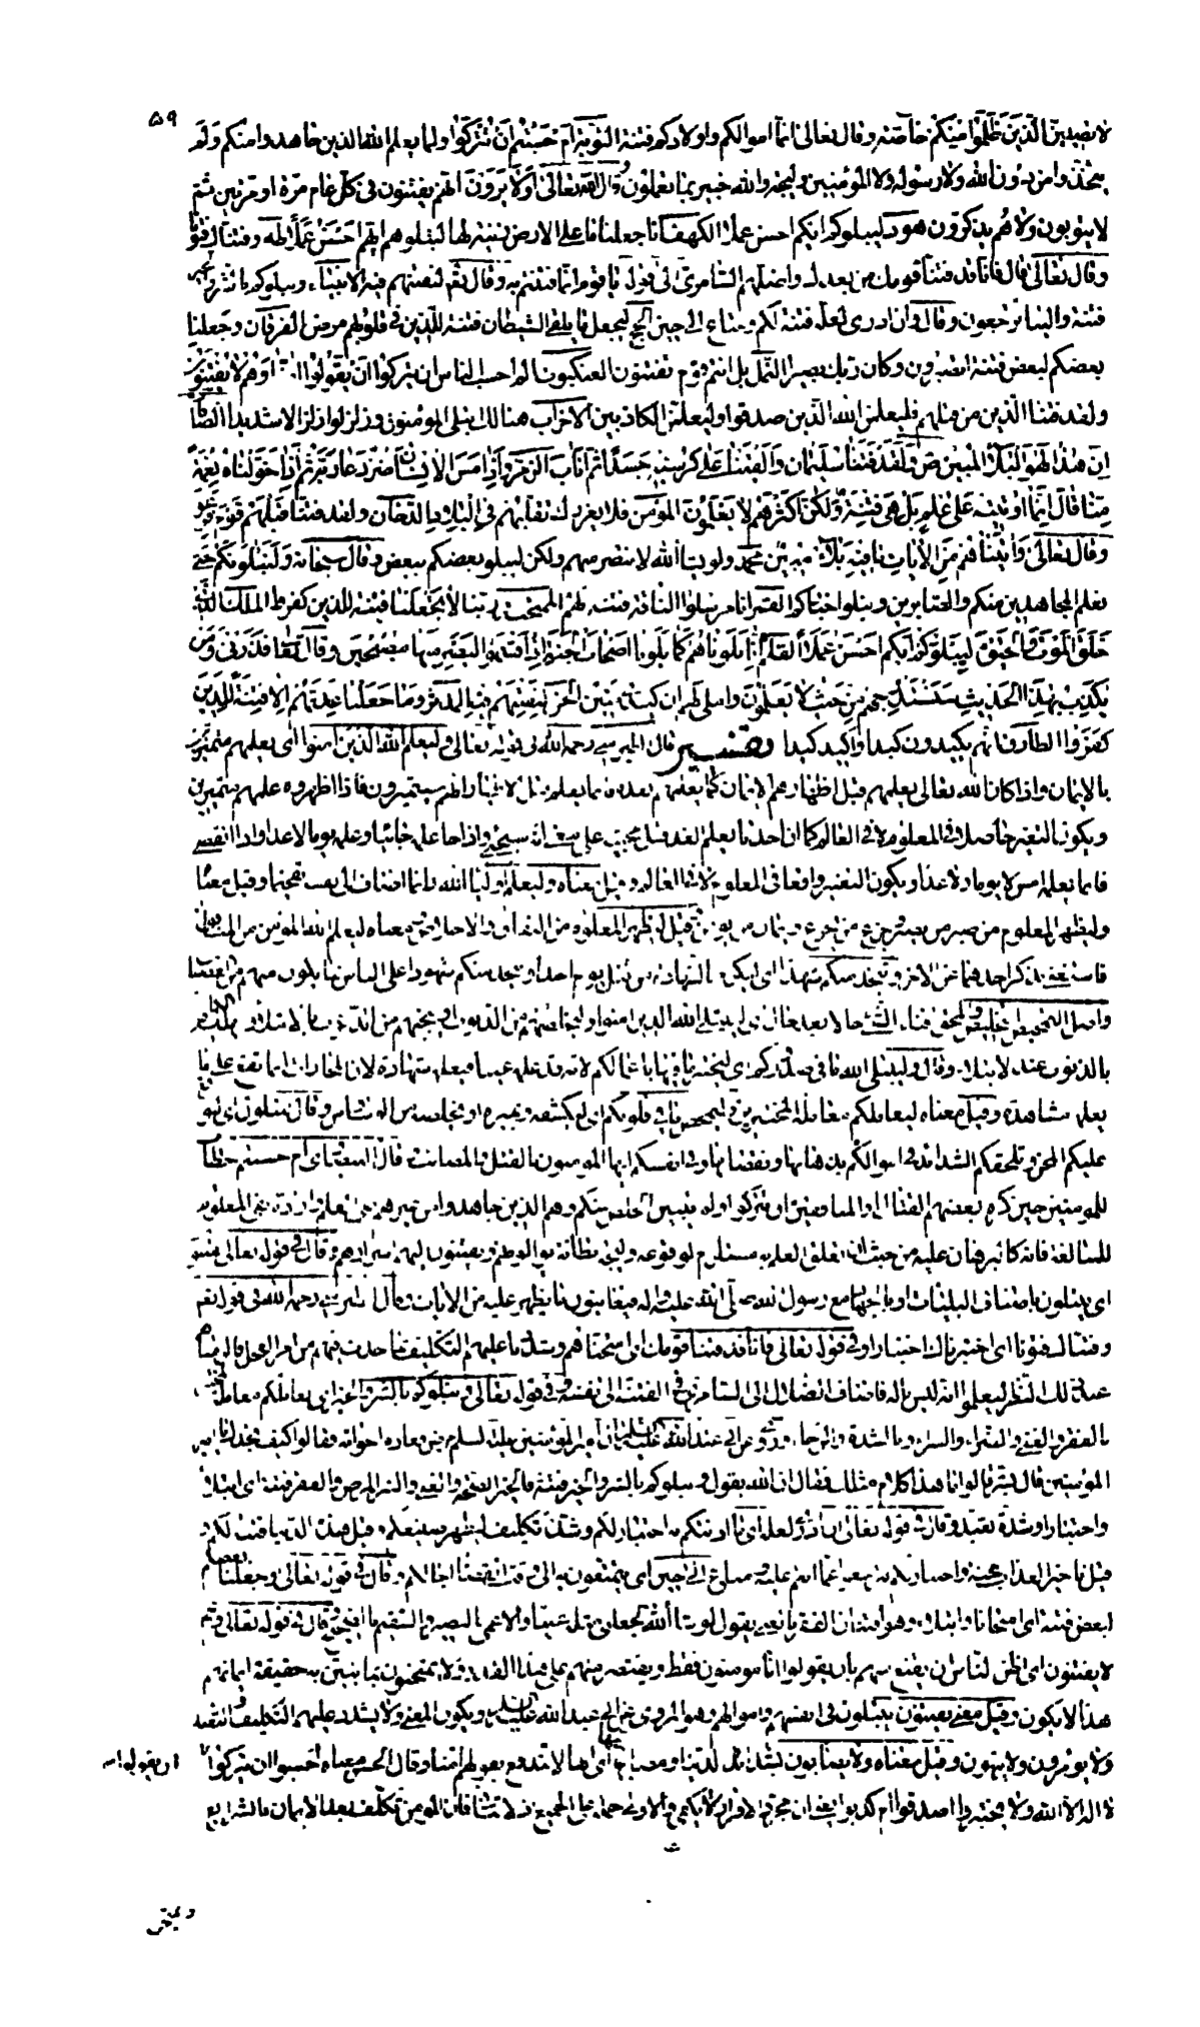 ٥٩
لا تصيبن الذين ظلموا منكم خاصة وقال تعالى انما اموالكم واولادكم فتنة التوبة ام حسبتم ان تتركوا ولما يعلم الله الذين جاهدوا منكم ولم
يتخذوا من دون الله ولا رسوله ولا المؤمنين وليجة والله خبير بما تعملون وقال تعالى اولا يرون انهم يفتنون في كل عام مرة او مرتين ثم
لا يتوبون ولا هم يذكرون هود ليبلوكم ايكم احسن عملا الكهف انا جعلنا ما على الارض زينة لها لنبلوهم ايهم احسن عملا طه وفتناك فتونا
وقال تعالى قال فانا قد فتنا قومك من بعدك واضلهم السامري الى قوله يا قوم انما فتنتم به وقال تعالى لنفتنهم فيه الانبياء ونبلوكم بالشر والخير
فتنة والينا ترجعون وقال وان ادري لعله فتنة لكم ومتاع الى حين الحج ليجعل ما يلقي الشيطان فتنة للذين في قلوبهم مرض الفرقان وجعلنا
بعضكم لبعض فتنة اتصبرون وكان ربك بصيرا النمل بل انتم قوم تفتنون العنكبوت الم احسب الناس ان يتركوا ان يقولوا امنا وهم لا يفتنون
ولقد فتنا الذين من قبلهم فليعلمن الله الذين صدقوا وليعلمن الكاذبين الاحزاب هنالك ابتلي المؤمنون وزلزلوا زلزالا شديدا الصافات
ان هذا لهو البلاء المبين ص ولقد فتنا سليمان والقينا على كرسيه جسدا ثم اناب الزمر واذا مس الانسان ضر دعا ربه ثم اذا خولناه نعمة
منا قال انما اوتيته على علم بل هي فتنة ولكن اكثرهم لا يعلمون المؤمن فلا يغررك تقلبهم في البلاد الدخان ولقد فتنا قبلهم قوم فرعون
وقال تعالى واتيناهم من الايات ما فيه بلاء مبين محمد ولو يشاء الله لانتصر منهم ولكن ليبلو بعضكم ببعض وقال سبحانه ولنبلونكم حتى
نعلم المجاهدين منكم والصابرين ونبلوا اخباركم القمر انا مرسلوا الناقة فتنة لهم الممتحنة ربنا لا تجعلنا فتنة للذين كفروا الملك الذي
خلق الموت والحيوة ليبلوكم ايكم احسن عملا القلم انا بلوناهم كما بلونا اصحاب الجنة اذ اقسموا ليصرمنها مصبحين وقال تعالى فذرني ومن
يكذب بهذا الحديث سنستدرجهم من حيث لا يعلمون واملي لهم ان كيدي متين الجن لنفتنهم فيه المدثر وما جعلنا عدتهم الا فتنة للذين
كفروا الطارق انهم يكيدون كيدا واكيد كيدا تفسير قال الطبرسي رحمه الله في قوله تعالى وليعلم الله الذين امنوا اي يعلمهم متميزين
بالايمان واذا كان الله تعالى يعلمهم قبل اظهارهم الايمان كما يعلمهم بعده فانما يعلم قبل الاظهار انهم سيتميزون فاذا اظهروه علمهم متميزين
ويكون التغير حاصلا في المعلوم لا في العالم كما ان احدنا يعلم الغد قبل مجيئه على معنى انه سيجيء واذا جاء علمه جائيا وعلمه يوما لا غدا واذا انقضى
فانما يعلمه امس لا يوما ولا غدا ويكون التغير واقعا في المعلوم لا في العالم وقيل معناه وليعلم اولياء الله وانما اضاف الى نفسه تفخيما وقيل معناه
وليظهر المعلوم من صبر من يصبر وجزع من يجزع وايمان من يؤمن وقيل ليظهر المعلوم من النفاق والاخلاص ومعناه ليعلم الله المؤمن من المنافق
فاستغنى بذكر احدهما عن الاخر ويتخذ منكم شهداء اي ليكرم بالشهادة من قتل يوم احد او يتخذ منكم شهودا على الناس بما يكون منهم من العصيان
واصل التمحيص التخليص والمحق افناء الشيء حالا بعد حال اي ليبتلي الله الذين امنوا وليخلصهم من الذنوب او ينجيهم من الذنوب بالابتلاء ويهلك الكافرين
بالذنوب عند الابتلاء وقال وليبتلي الله ما في صدوركم اي ليختبر ما فيها باعمالكم لانه قد علمه غيبا فيعلمه شهادة لان المجازاة انما تقع على ما
يعلمه مشاهدة وقيل معناه ليعاملكم معاملة المختبرين وليمحص ما في قلوبكم اي ليكشفه ويميزه او يخلصه من الوساوس وقال لتبلون اي لتوقع
عليكم المحن وتلحقكم الشدائد في اموالكم بذهابها ونقصانها وفي انفسكم ايها المؤمنون بالقتل والمصائب قال البيضاوي ام حسبتم خطاب
للمؤمنين حين كره بعضهم القتال او المنافقين ان تتركوا ولم يتبين الخلص منكم وهم الذين جاهدوا من غيرهم نفى العلم وارادة نفي المعلوم
للمبالغة فانه كالبرهان عليه من حيث ان تعلق العلم به مستلزم لوقوعه وليجة بطانة يوالونهم ويفشون اليهم اسرارهم وقال في قوله تعالى يفتنون
اي يبتلون باصناف البليات او بالجهاد مع رسول الله صلى الله عليه واله فيعاينون ما يظهر عليه من الايات وقال الطبرسي رحمه الله في قوله تعالى
وفتناك فتونا اي اختبرناك اختبارا وفي قوله تعالى فانا قد فتنا قومك اي امتحناهم وشددنا عليهم التكليف بما حدث فيهم من امر العجل فالزمناهم
عند ذلك النظر ليعلموا انه ليس باله فاضاف الضلال الى السامري والفتنة الى نفسه وفي قوله تعالى ونبلوكم بالشر والخير اي نعاملكم معاملة المختبر
بالفقر والغنى والضراء والسراء وبالشدة والرخاء وروي عن ابي عبد الله عليه السلام ان امير المؤمنين عليه السلم مرض فعاده اخوانه فقالوا كيف تجدك يا امير
المؤمنين قال بشر قالوا ما هذا كلام مثلك فقال ان الله يقول ونبلوكم بالشر والخير فتنة فالخير الصحة والغنى والشر المرض والفقر فتنة اي ابتلاء
واختبارا وشدة تعبد وقال في قوله تعالى وان ادري لعله اي ما اذنتكم به اختبار لكم وشدة تكليف ليظهر صنيعكم وقيل هذه الدنيا فتنة لكم
قيل تاخير العذاب محنة واختبار لكم لترجعوا عما انتم عليه ومتاع الى حين اي تتمتعون به الى وقت انقضاء اجالكم وقال في قوله تعالى وجعلنا بعضكم
لبعض فتنة اي امتحانا وابتلاء وهو افتتان الفقير بالغني يقول لو شاء الله لجعلني مثله غنيا والاعمى بالبصير والسقيم بالصحيح وقال في قوله تعالى وهم
لا يفتنون اي اظن الناس ان يقنع منهم بان يقولوا انا مؤمنون فقط ويقتصر منهم على هذا القدر ولا يمتحنون بما يتبين به حقيقة ايمانهم
هذا لا يكون وقيل معنى يفتنون يبتلون في انفسهم واموالهم وهو المروي عن ابي عبد الله عليه السلام ويكون المعنى ولا يشدد عليهم التكليف والتعبد
ولا يؤمرون ولا ينهون وقيل معناه ولا يصابون بشدائد الدنيا ومصائبها اي انها لا تندفع بقولهم امنا وقال الحسن معناه احسبوا ان يتركوا
ان يقولوا لا
اله الا الله ولا يختبروا اصدقوا ام كذبوا يعني ان مجرد الاقرار لا يكفي والاولى حمله على الجميع اذ لا تنافي فان المؤمن يكلف بعد الايمان بالشرايع
ويمتحن